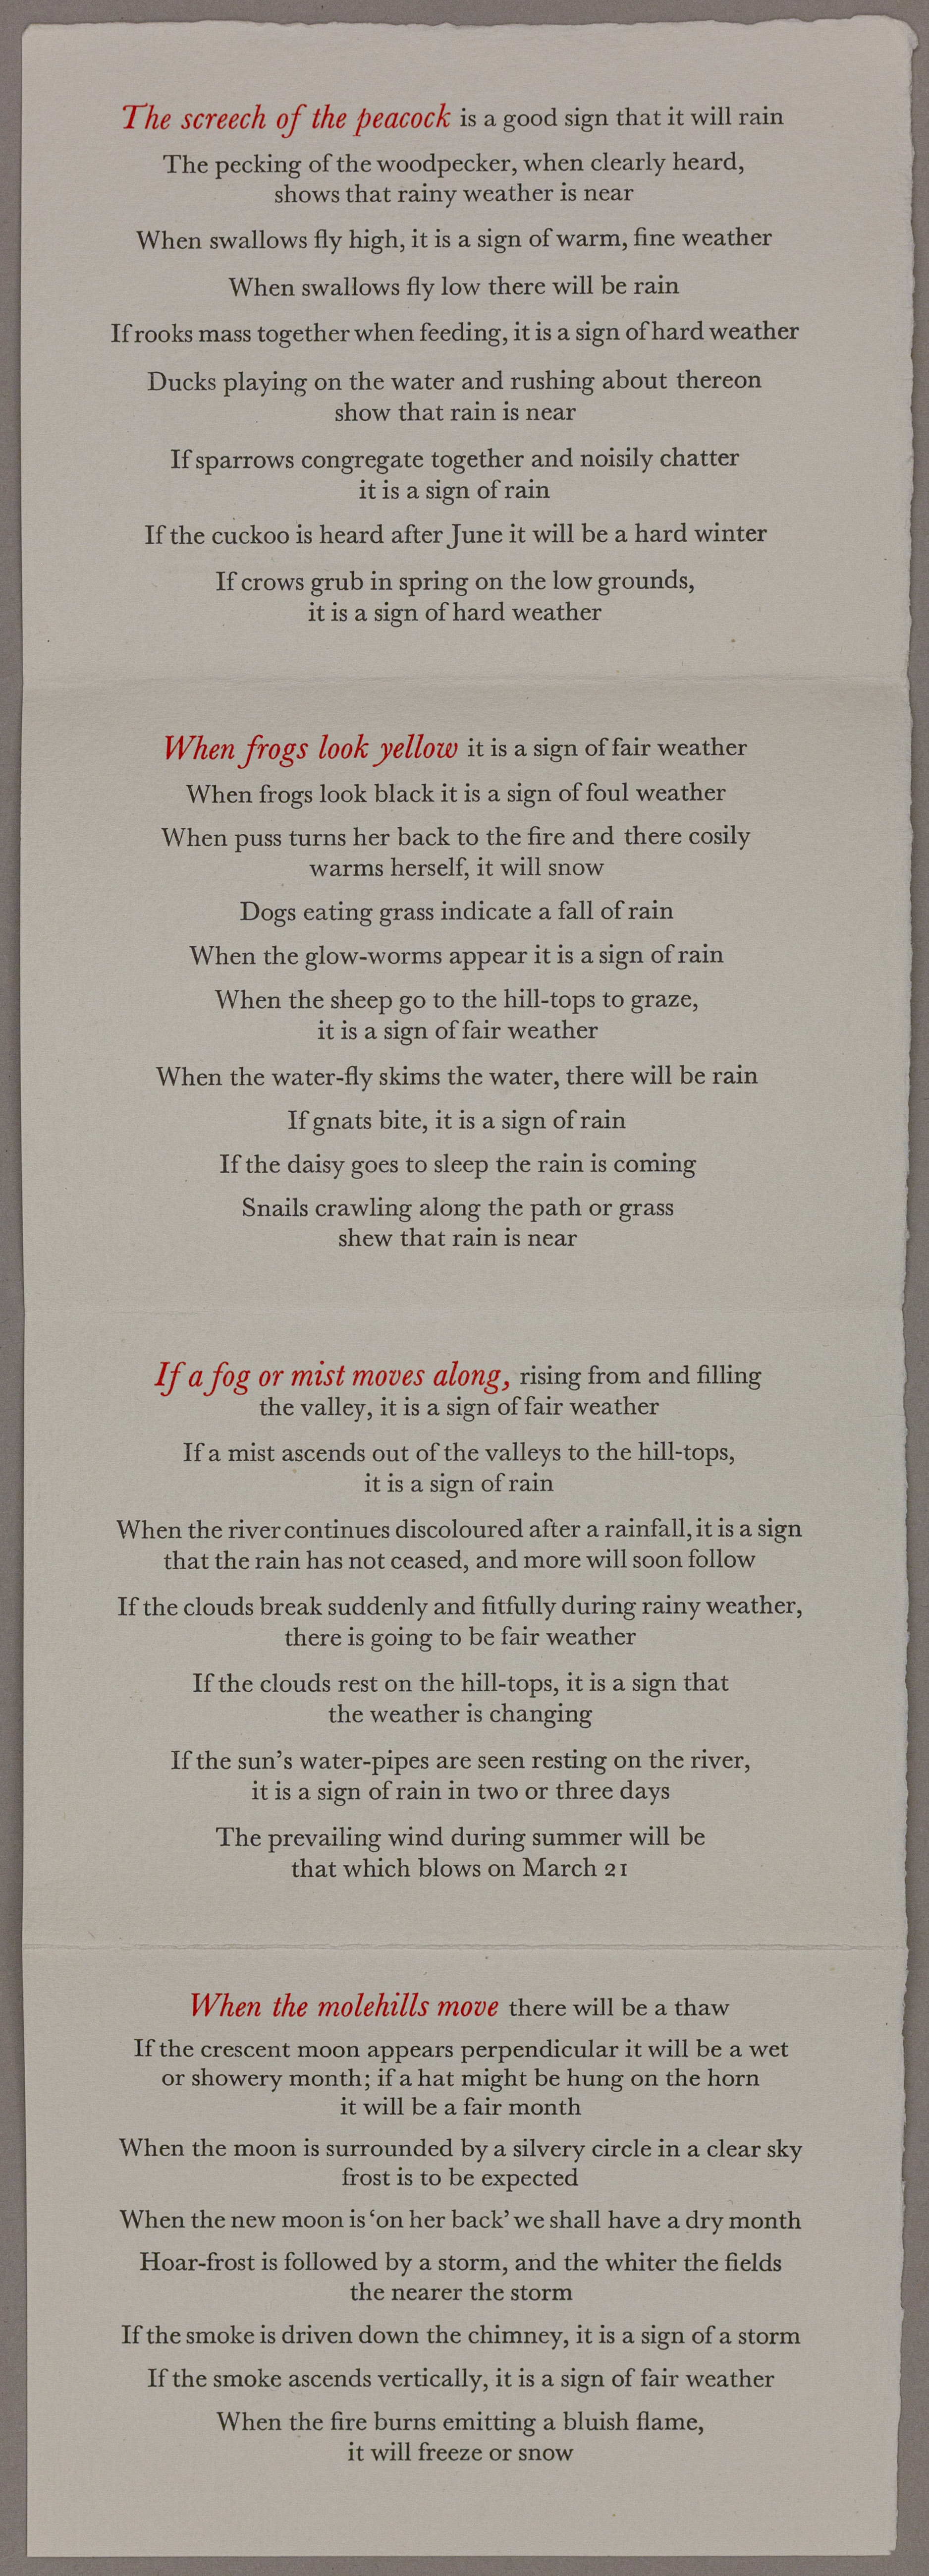 The screech of the peacock is a good sign that it will rain
The pecking of the woodpecker, when clearly heard,
shows that rainy weather is near
When swallows fly high, it is a sign of warm, fine weather
When swallows fly low there will be rain
If rooks mass together when feeding, it is a sign of hard weather
Ducks playing on the water and rushing about thereon
show that rain is near
If sparrows congregate together and noisily chatter
it is a sign of rain
If the cuckoo is heard after June it will be a hard winter
If crows grub in spring on the low grounds,
it is a sign of hard weather
When frogs look yellow it is a sign of fair weather
When frogs look black it is a sign of foul weather
When puss turns her back to the fire and there cosily
warms herself, it will snow
Dogs eating grass indicate a fall of rain
When the glow-worms appear it is a sign of rain
When the sheep go to the hill-tops to graze,
it is a sign of fair weather
When the water-fly skims the water, there will be rain
If gnats bite, it is a sign of rain
If the daisy goes to sleep the rain is coming
Snails crawling along the path or grass
shew that rain is near
If a fog or mist moves along, rising from and filling
the valley, it is a sign of fair weather
If a mist ascends out of the valleys to the hill-tops,
it is a sign of rain
When the river continues discoloured after a rainfall, it is a sign
that the rain has not ceased, and more will soon follow
If the clouds break suddenly and fitfully during rainy weather,
there is going to be fair weather
If the clouds rest on the hill-tops, it is a sign that
the weather is changing
If the sun's water-pipes are seen resting on the river,
it is a sign of rain in two or three days
The prevailing wind during summer will be
that which blows on March 21
When the molehills move there will be a thaw
If the crescent moon appears perpendicular it will be a wet
or showery month; if a hat might be hung on the horn
it will be a fair month
When the moon is surrounded by a silvery circle in a clear sky
frost is to be expected
When the new moon is ‘on her back’ we shall have a dry month
Hoar-frost is followed by a storm, and the whiter the fields
the nearer the storm
If the smoke is driven down the chimney, it is a sign of a storm
If the smoke ascends vertically, it is a sign of fair weather
When the fire burns emitting a bluish flame,
it will freeze or snow